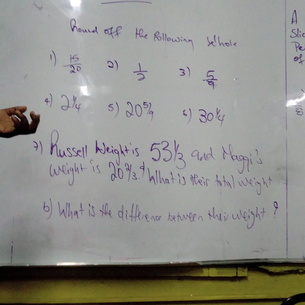 Round off the following whole
1) 15/20 2) 1/2 3) 5/9
4) 2 1/4 5) 20 5/9 6) 30 1/4
7) Russell Weight is 53 1/3 and Maggi's
weight is 20 2/3 What is their total weight
b) What is the difference between their weight ?
A